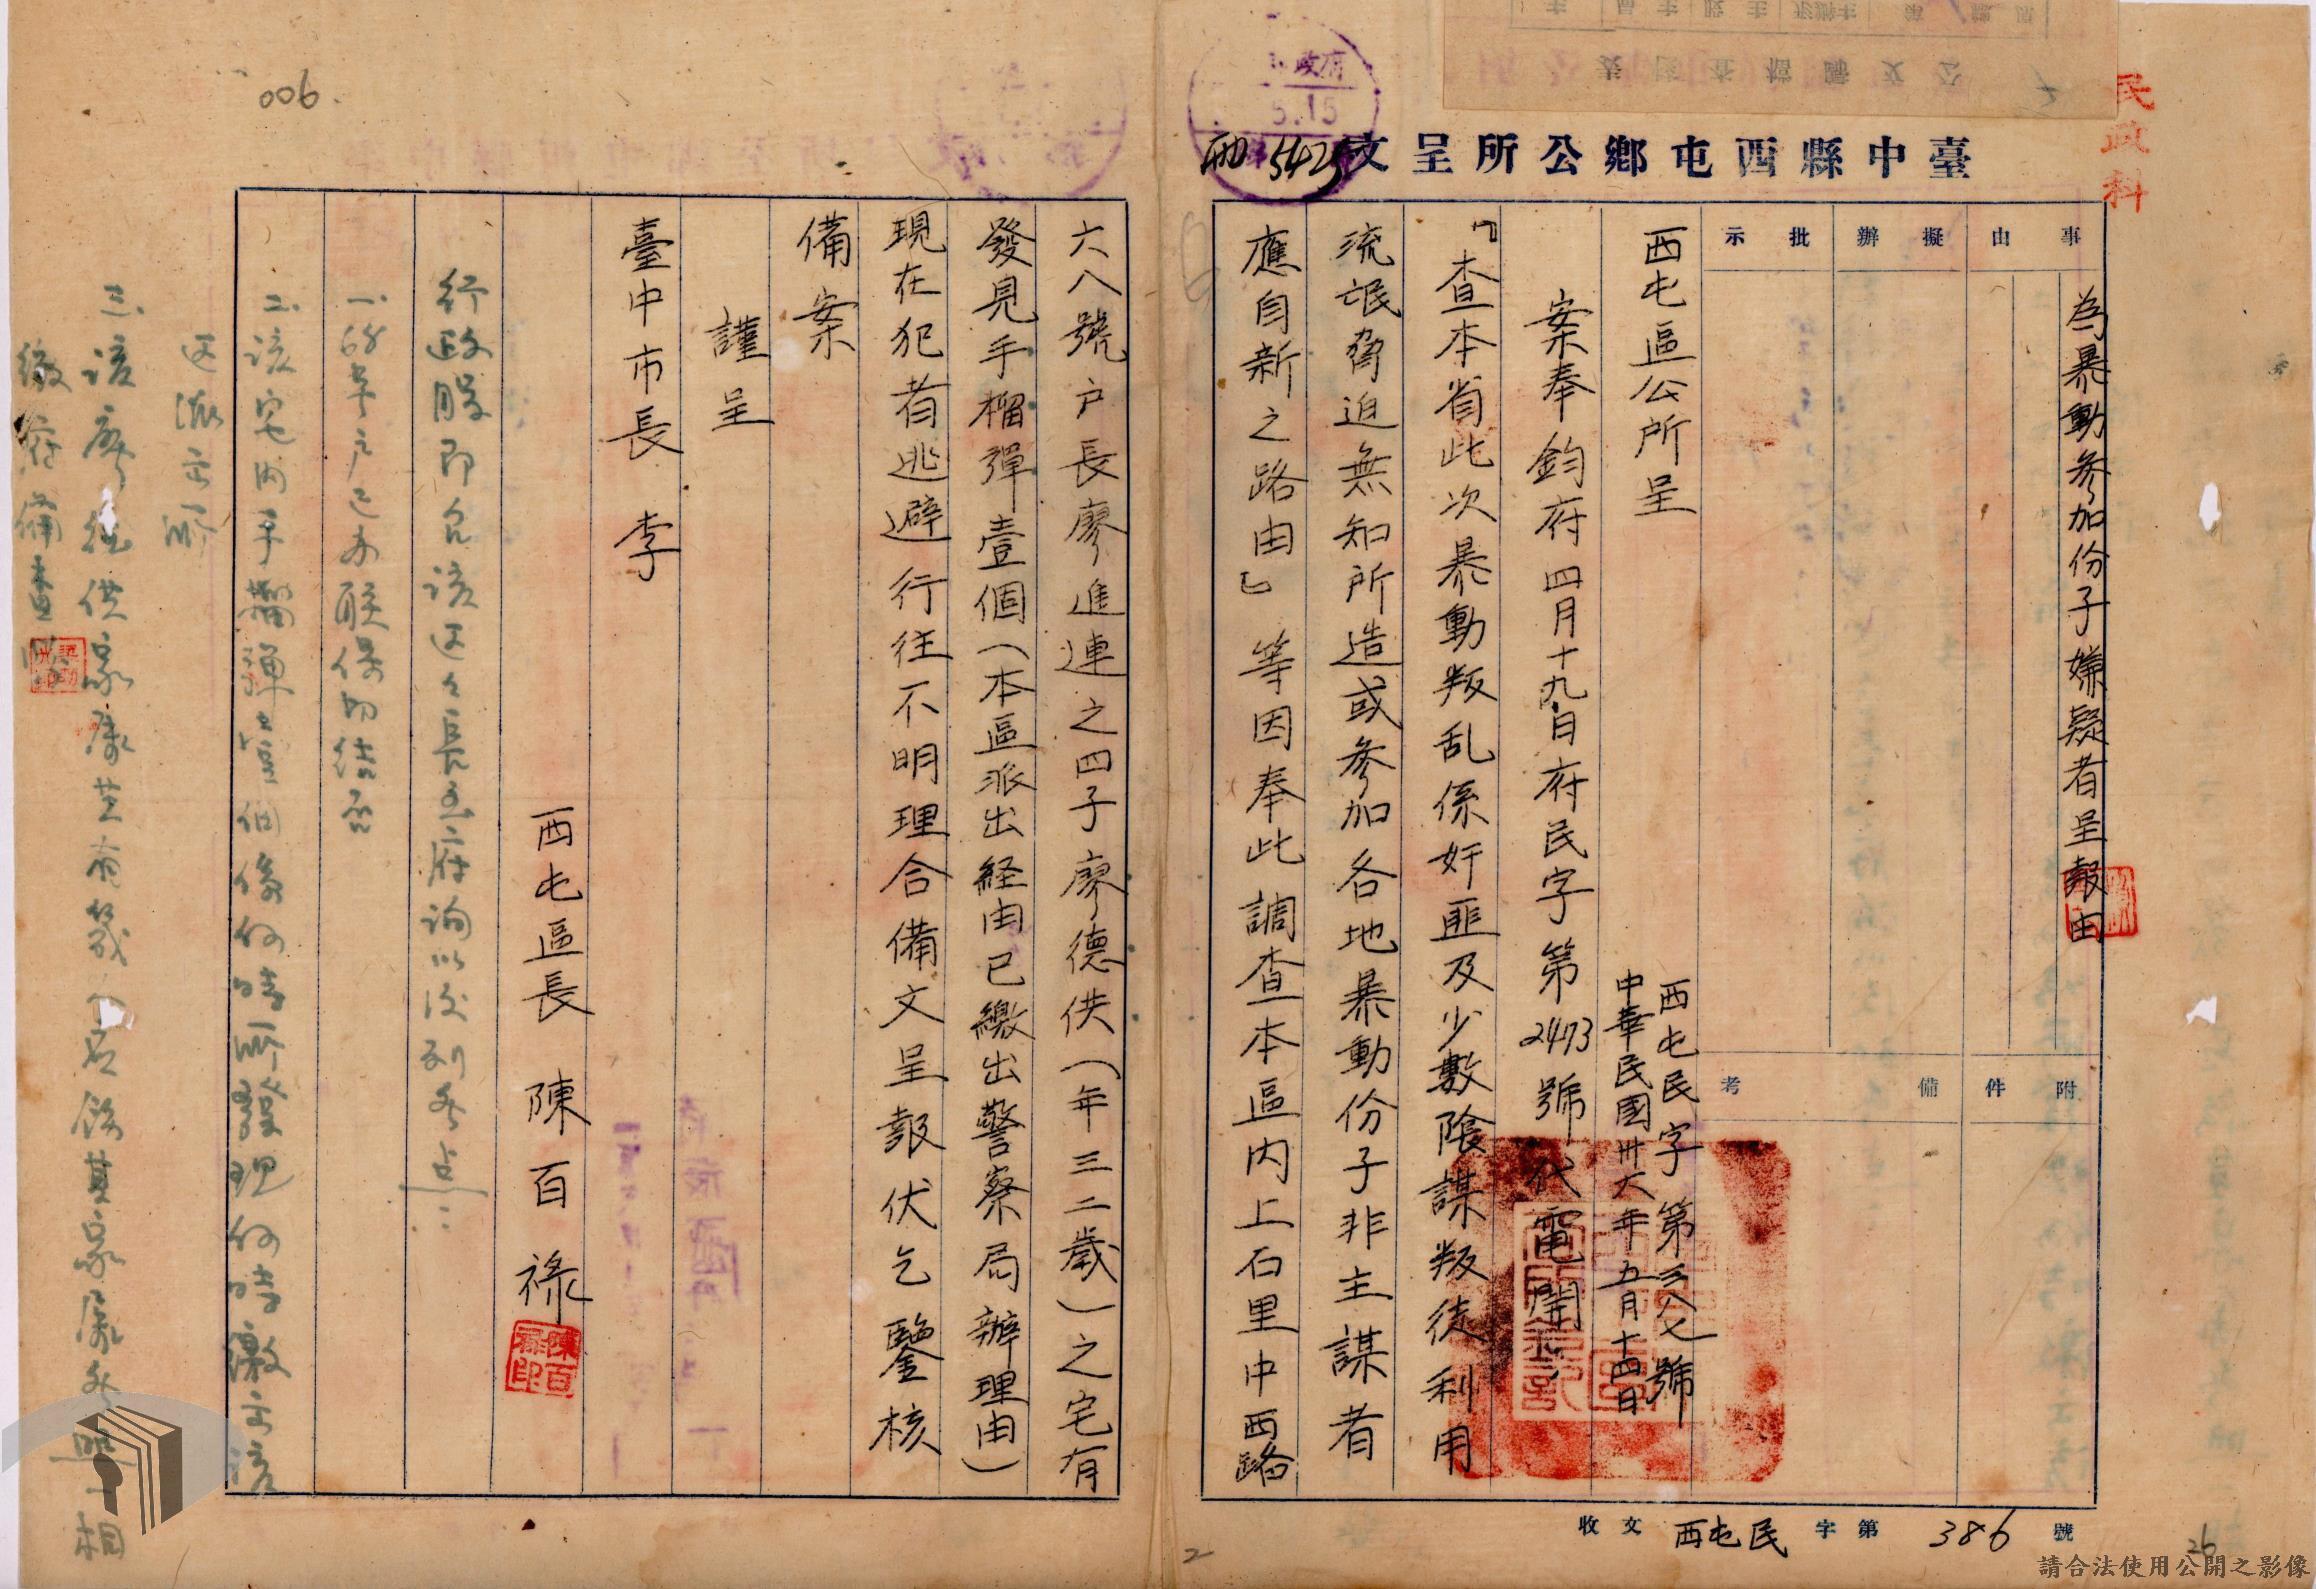 民政科
臺中縣西屯鄉公所呈文
政府
5.15
5425
事由
擬辦
批示
附件
備考
為暴動參加份子嫌疑者呈報由
西屯民字第三八七號
中華民國卅六年五月十四日
西屯區公所呈
案奉鈞府四月十九日府民字第2473號代電開：
「查本省此次暴動叛乱係奸匪及少數陰謀叛徒利用
流氓脅迫無知所造或參加各地暴動份子非主謀者
應自新之路由」等因奉此調查本區内上石里中西路
收文西屯民字第386號
26
2
006
六八號户長廖進連之四子廖德供(年三二歲)之宅有
發見手榴彈壹個(本區派出経由已繳出警察局辦理由)
現在犯者逃避行往不明理合備文呈報伏乞鑒核
備案
謹呈
臺中市長 李
西屯區長 陳百祿
陳百祿印
行政股即召該区区長至府詢以次列各点：
一、 户已未联保切结否
二、該宅内手榴彈壹個係何時所發現何時繳交該
区派出所
三、該廖德供家屬共有幾人名飭其家屬各照一相
繳府備查
請合法使用公開之影像